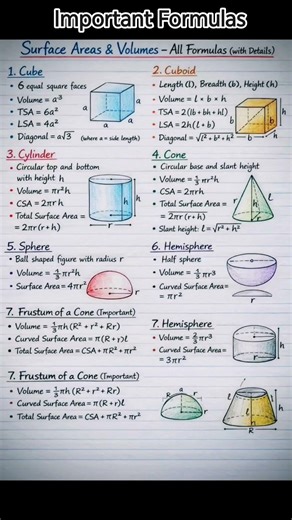 Important Formulas
Surface Areas & Volumes – All Formulas (with Details)
1. Cube
• 6 equal square faces
• Volume = a³
• TSA = 6a²
• LSA = 4a²
• Diagonal = a√3 (where a = side length)
a
a
a
2. Cuboid
• Length (l), Breadth (b), Height (h)
• Volume = l × b × h
• TSA = 2(lb + bh + hl)
• LSA = 2h(l + b)
• Diagonal = √l² + b² + h²
h
b
b
3. Cylinder
• Circular top and bottom
with height h
• Volume = πr²h
• CSA = 2πrh
• Total Surface Area =
= 2πr(r + h)
h
h
r
4. Cone
• Circular base and slant height
• Volume = 1/3 πr²h
• CSA = 2πrh
• Total Surface Area =
= 2πr(r + h)
• Slant height: l = √r² + h²
l
h
r
5. Sphere
• Ball shaped figure with radius r
• Volume = 4/3 πr²h
• Surface Area = 4πr²
r
6. Hemisphere
• Half sphere
• Volume = 4/3 πr³
• Curved Surface Area =
= πr²
r
7. Frustum of a Cone (Important)
• Volume = 1/3 πh (R² + r² + Rr)
• Curved Surface Area = π(R + r)l
• Total Surface Area = CSA + πR² + πr²
7. Hemisphere
• Volume = 2/3 πr³
• Curved Surface Area =
= 3πr²
h
r
7. Frustum of a Cone (Important)
• Volume = 1/3 πh (R² + r² + Rr)
• Curved Surface Area = π(R + r)l
• Total Surface Area = CSA + πR² + πr²
a
r
r
r
l
R